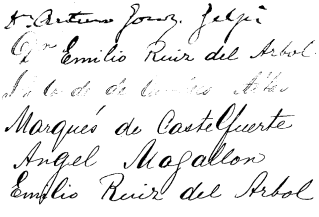 Dr Arturo Gonz. Gelpí
Emilio Ruiz del Arbol
de
Marqués de Castelfuerte
Angel Magallon
Emilio Ruiz del Arbol